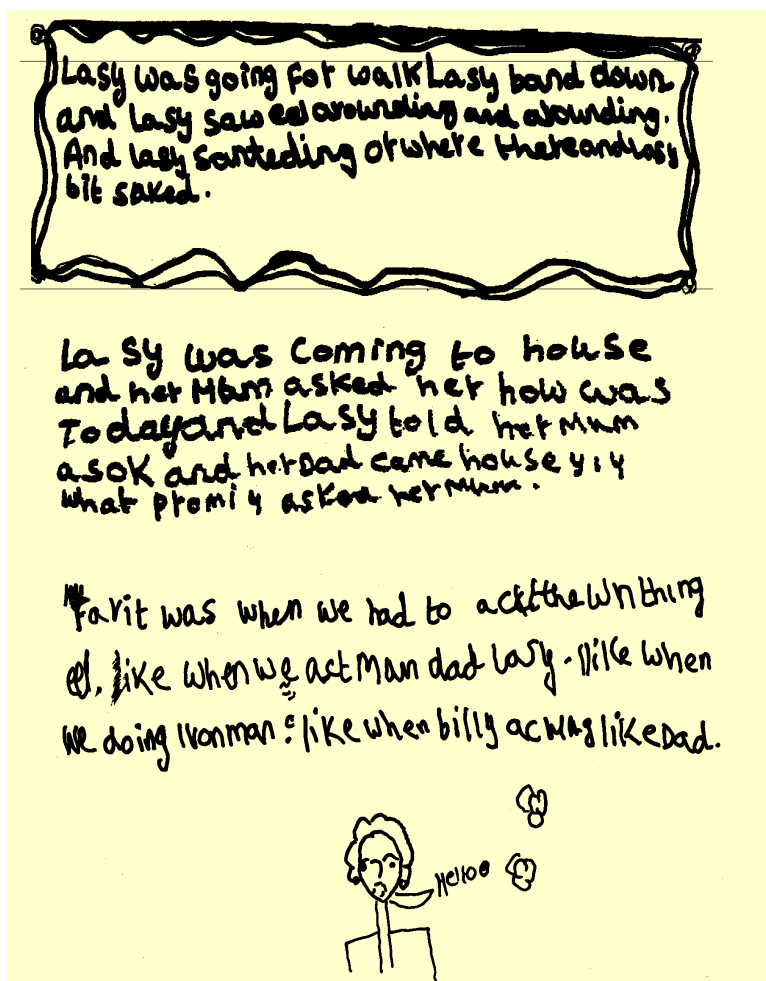 Lasy was going for walk Lasy band down
and lasy saw eel arounding and arounding.
And lasy santeding of where there and lasy
bit saked.
La sy was coming to house
and her Mum asked her how was
Today and Lasy told her Mum
as ok and her Dad came house y i y
what promi y asked her Mum.
Favit was when we had to act the wn thing
eel. like when we act Man dad Lasy. like when
we doing Ironman. like when billy ac like Dad.
Hello